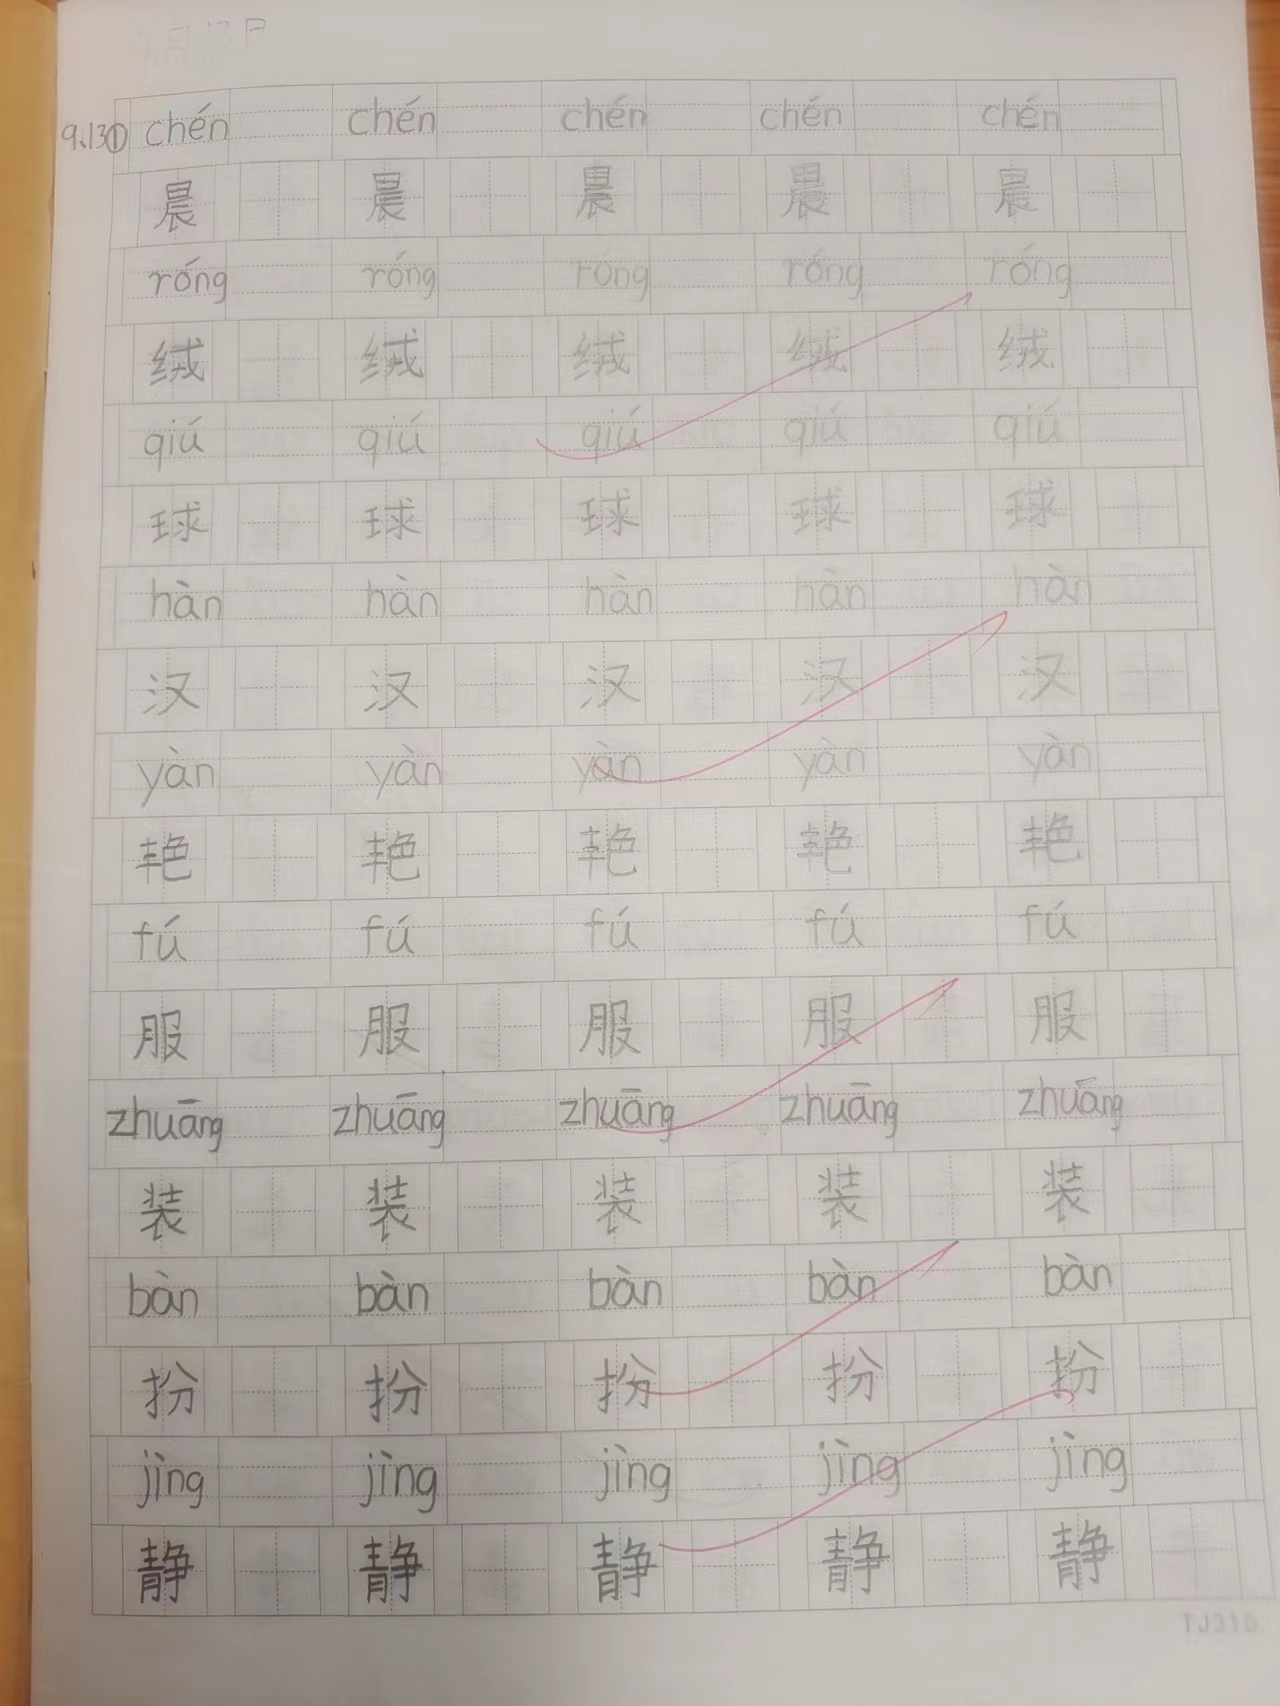 9.13① chén chén chén chén chén
晨 晨 晨 晨 晨
róng róng róng róng róng
绒 绒 绒 绒 绒
qiú qiú qiú qiú qiú
球 球 球 球 球
hàn hàn hàn hàn hàn
汉 汉 汉 汉 汉
yàn yàn yàn yàn yàn
艳 艳 艳 艳 艳
fú fú fú fú fú
服 服 服 服 服
zhuāng zhuāng zhuāng zhuāng zhuāng
装 装 装 装 装
bàn bàn bàn bàn bàn
扮 扮 扮 扮 扮
jìng jìng jìng jìng jìng
静 静 静 静 静
TJ310